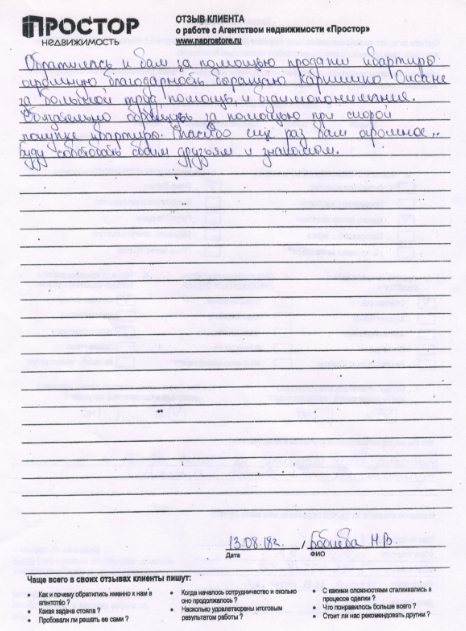 ПРОСТОР
НЕДВИЖИМОСТЬ
ОТЗЫВ КЛИЕНТА
о работе с Агентством недвижимости «Простор»
www.naprostore.ru
Обратилась к вам за помощью продажи квартиры.
огромную благодарность Оксане
за большой труд, помощь, и взаимопонимание.
Обязательно за помощью при скорой
покупке квартиры. Спасибо еще раз вам огромное..
Буду советовать своим друзьям и знакомым.
13.08.18г. / Н В.
Дата ФИО
Чаще всего в своих отзывах клиенты пишут:
• Как и почему обратились именно к нам в агентство ?
• Какая задача стояла ?
• Пробовали ли решать ее сами ?
• Когда началось сотрудничество и сколько оно продолжалось ?
• Насколько удовлетворены итоговым результатом работы ?
• С какими сложностями сталкивались в процессе сделки ?
• Что понравилось больше всего ?
• Стоит ли нас рекомендовать другим ?